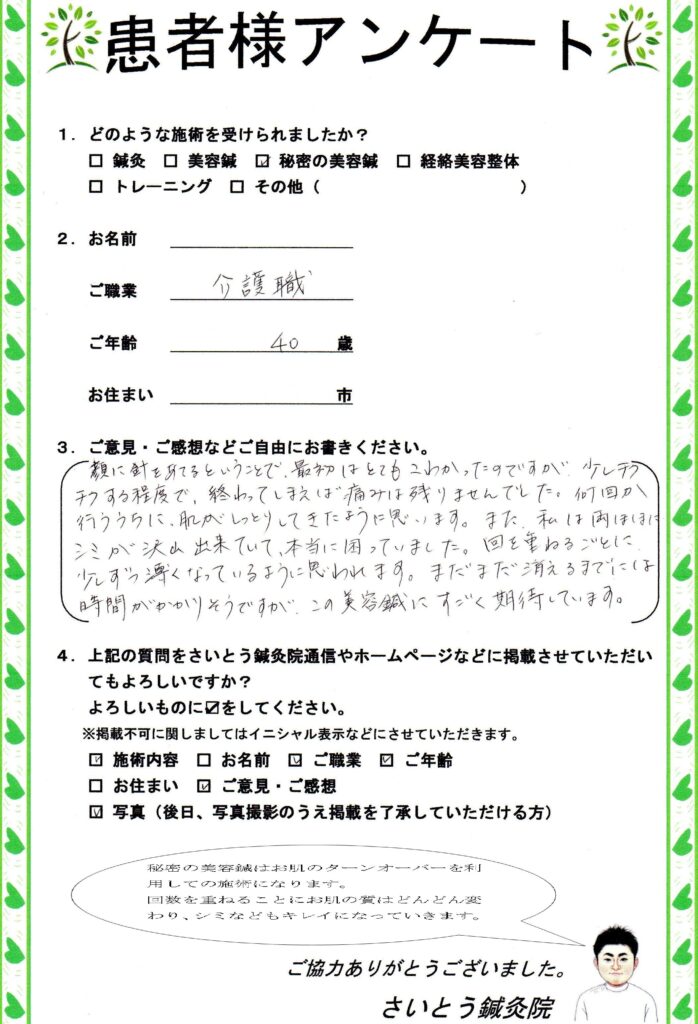 患者様アンケート
1．どのような施術を受けられましたか？
□ 鍼灸 □ 美容鍼 ☑ 秘密の美容鍼 □ 経絡美容整体
□ トレーニング □ その他（ ）
2．お名前
ご職業 介護職
ご年齢 40 歳
お住まい 市
3．ご意見・ご感想などご自由にお書きください。
顔に針をあてるということで、最初はとてもこわかったのですが、少しチク
チクする程度で、終わってしまえば痛みは残りませんでした。何回か
行ううちに、肌がしっとりしてきたように思います。また、私は両ほほに
シミが沢山出来ていて、本当に困っていました。回を重ねるごとに、
少しずつ薄くなっているように思われます。まだまだ消えるまでには
時間がかかりそうですが、この美容鍼にすごく期待しています。
4．上記の質問をさいとう鍼灸院通信やホームページなどに掲載させていただい
てもよろしいですか？
よろしいものに☑をしてください。
※掲載不可に関しましてはイニシャル表示などにさせていただきます。
☑ 施術内容 □ お名前 ☑ ご職業 ☑ ご年齢
□ お住まい ☑ ご意見・ご感想
☑ 写真（後日、写真撮影のうえ掲載を了承していただける方）
秘密の美容鍼はお肌のターンオーバーを利
用しての施術になります。
回数を重ねることにお肌の質はどんどん変
わり、シミなどもキレイになっていきます。
ご協力ありがとうございました。
さいとう鍼灸院